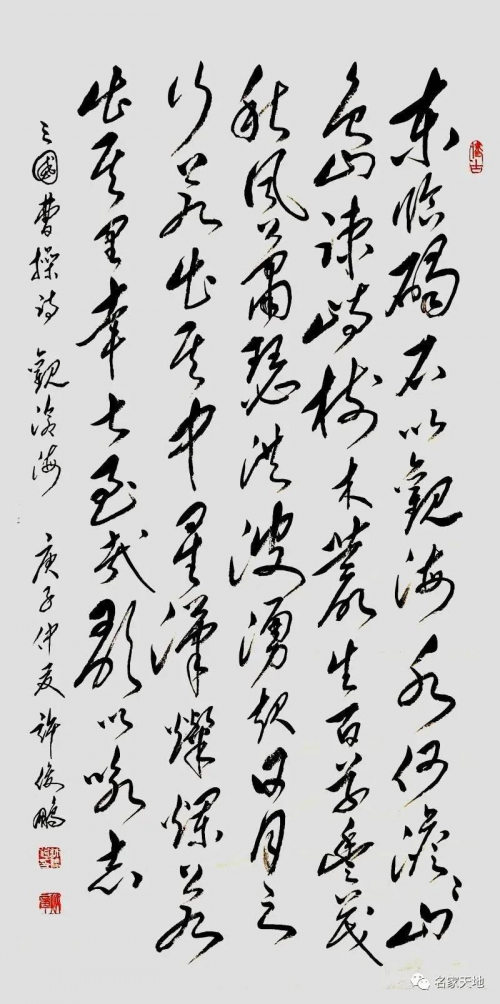 東臨碣石以觀海水何澹〻山
島竦峙樹木叢生百草豐茂
秋風蕭瑟洪波湧起日月之
行若出其中星漢燦爛若
出其里幸甚至哉歌以詠志
三國曹操詩 觀滄海 庚子仲夏 許俊鵬
名家天地